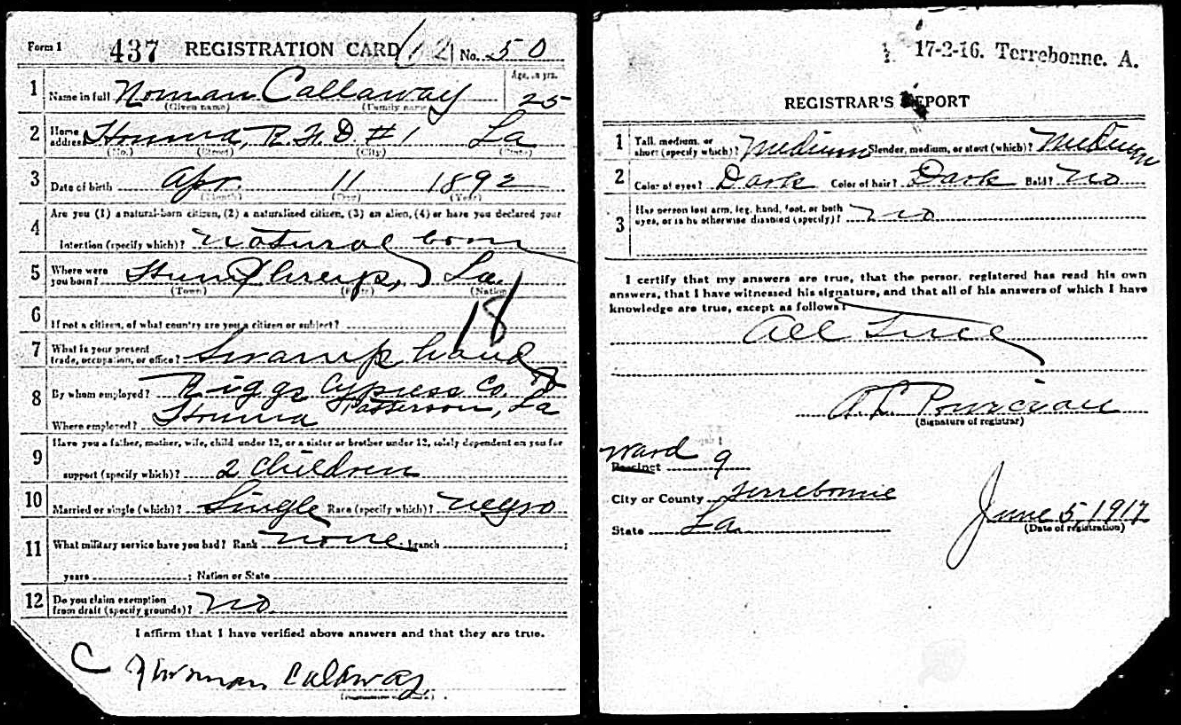 Form 1 437 REGISTRATION CARD (12) No. 50
1 Name in full Noman Callaway Age, in yrs. 25
(Given name) (Family name)
2 Home address Houma, R.F.D. #1 La
(No.) (Street) (City) (State)
3 Date of birth Apr. 11 1892
(Month) (Day) (Year)
4 Are you (1) a natural-born citizen, (2) a naturalized citizen, (3) an alien, (4) or have you declared your
intention (specify which)? natural born
5 Where were you born? Humphreys, La.
(Town) (State) (Nation)
18
6 If not a citizen, of what country are you a citizen or subject?
7 What is your present trade, occupation, or office? Swamp hand
8 By whom employed? Riggs Cypress Co.
Patterson, La
Where employed? Houma
9 Have you a father, mother, wife, child under 12, or a sister or brother under 12, solely dependent on you for
support (specify which)? 2 children
10 Married or single (which)? Single Race (specify which)? negro
11 What military service have you had? Rank none ; branch ;
years ; Nation or State
12 Do you claim exemption from draft (specify grounds)? no
I affirm that I have verified above answers and that they are true.
C Norman Calaway
17-2-16. Terrebonne. A.
REGISTRAR'S REPORT
1 Tall, medium, or short (specify which)? Medium Slender, medium, or stout (which)? Medium
2 Color of eyes? Dark Color of hair? Dark Bald? no
3 Has person lost arm, leg, hand, foot, or both
eyes, or is he otherwise disabled (specify)? no
I certify that my answers are true, that the person registered has read his own
answers, that I have witnessed his signature, and that all of his answers of which I have
knowledge are true, except as follows:
All True
(Signature of registrar)
Ward
Precinct 9
City or County Terrebonne
State La.
June 5, 1917
(Date of registration)